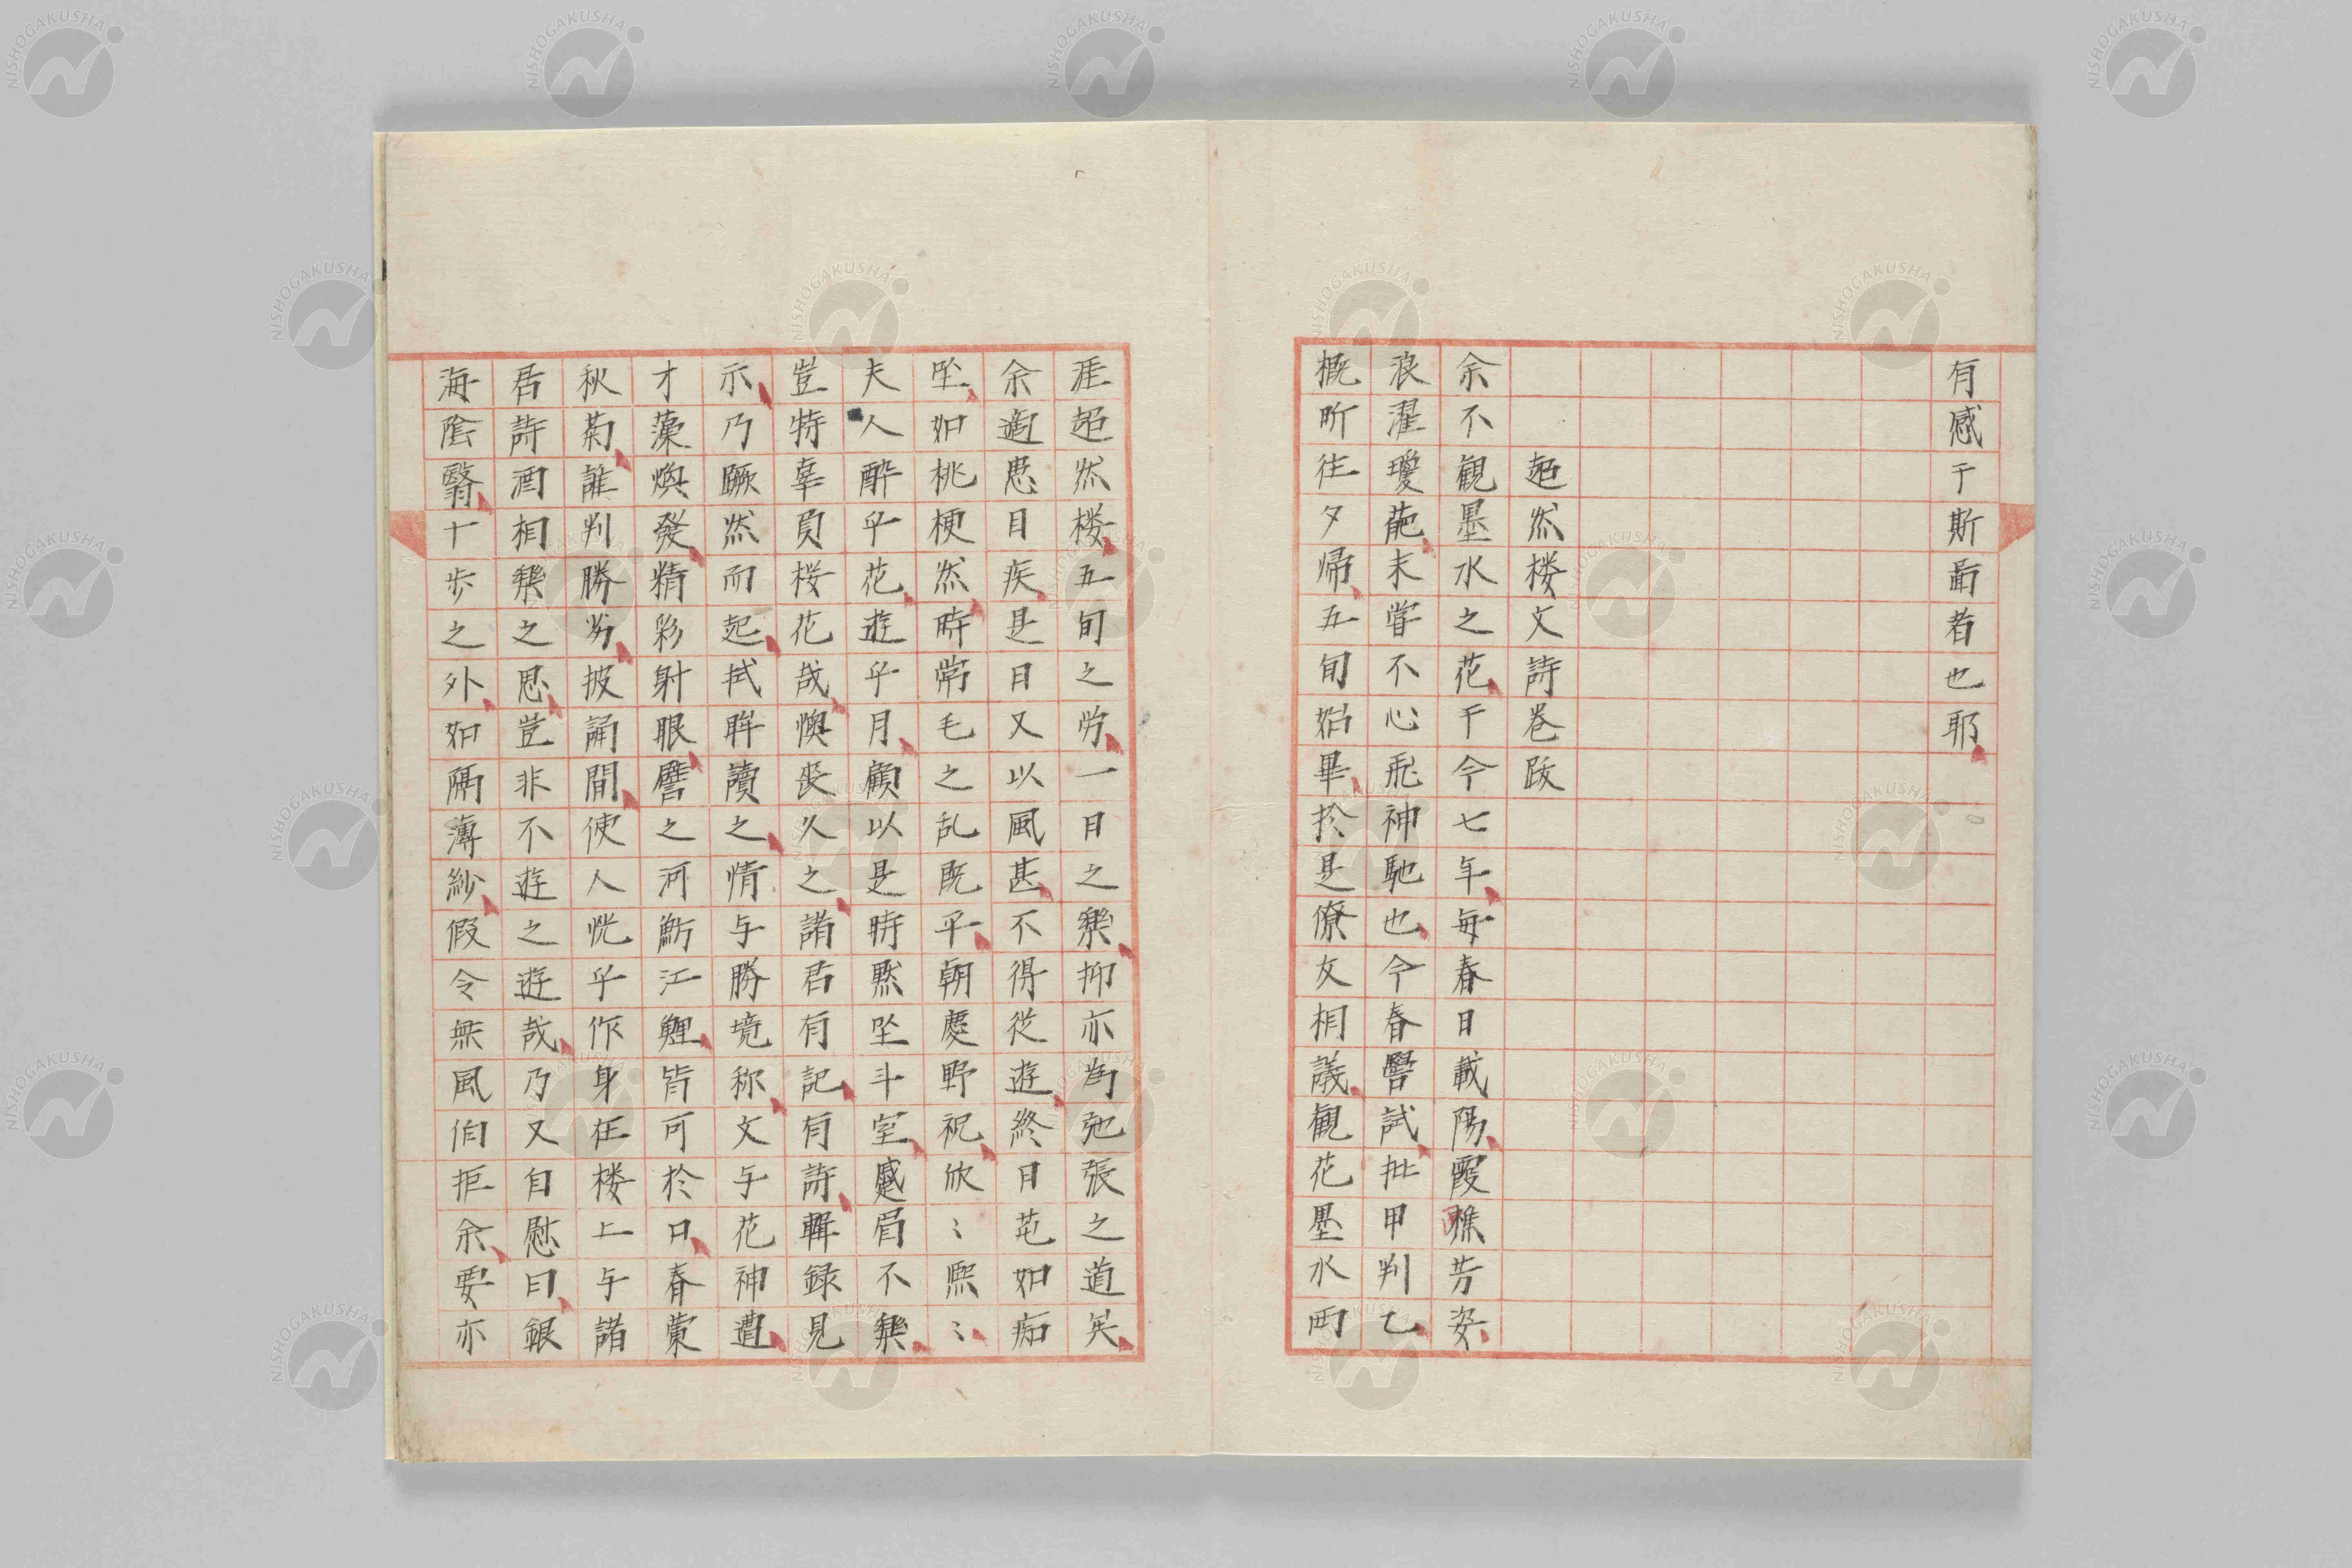 有感于斯啚者也耶
超然楼文詩巻跋
余不観墨水之花于今七年毎春日載陽霞樵芳姿
浪濯瓊葩未嘗不心飛神馳也今春医試批甲判乙
概昕往夕帰五旬始畢於是僚友相議観花墨水両
涯超然楼五旬之労一日之楽抑亦為弛張之道矣
余適患目疾是日又以風甚不得従遊終日芚如痴
坐如桃梗然時常毛之乱既平朝慶野祝欣〻熙〻
夫人酔乎花遊乎月顧以是時黙坐斗室蹙眉不楽
豈特辜負桜花哉懊喪久之諸君有記有詩輯録見
示乃蹶然而起拭眸讀之情与勝境称文与花神遭
才藻煥發精彩射眼譬之河魴江鯉皆可於口春蘭
秋菊誰判勝劣披誦間使人恍乎作身在楼上与諸
君詩酒相楽之思豈非不遊之遊哉乃又自慰曰銀
海陰翳十歩之外如隔薄紗假令無風伯拒余要亦
NISHOGAKUSHA